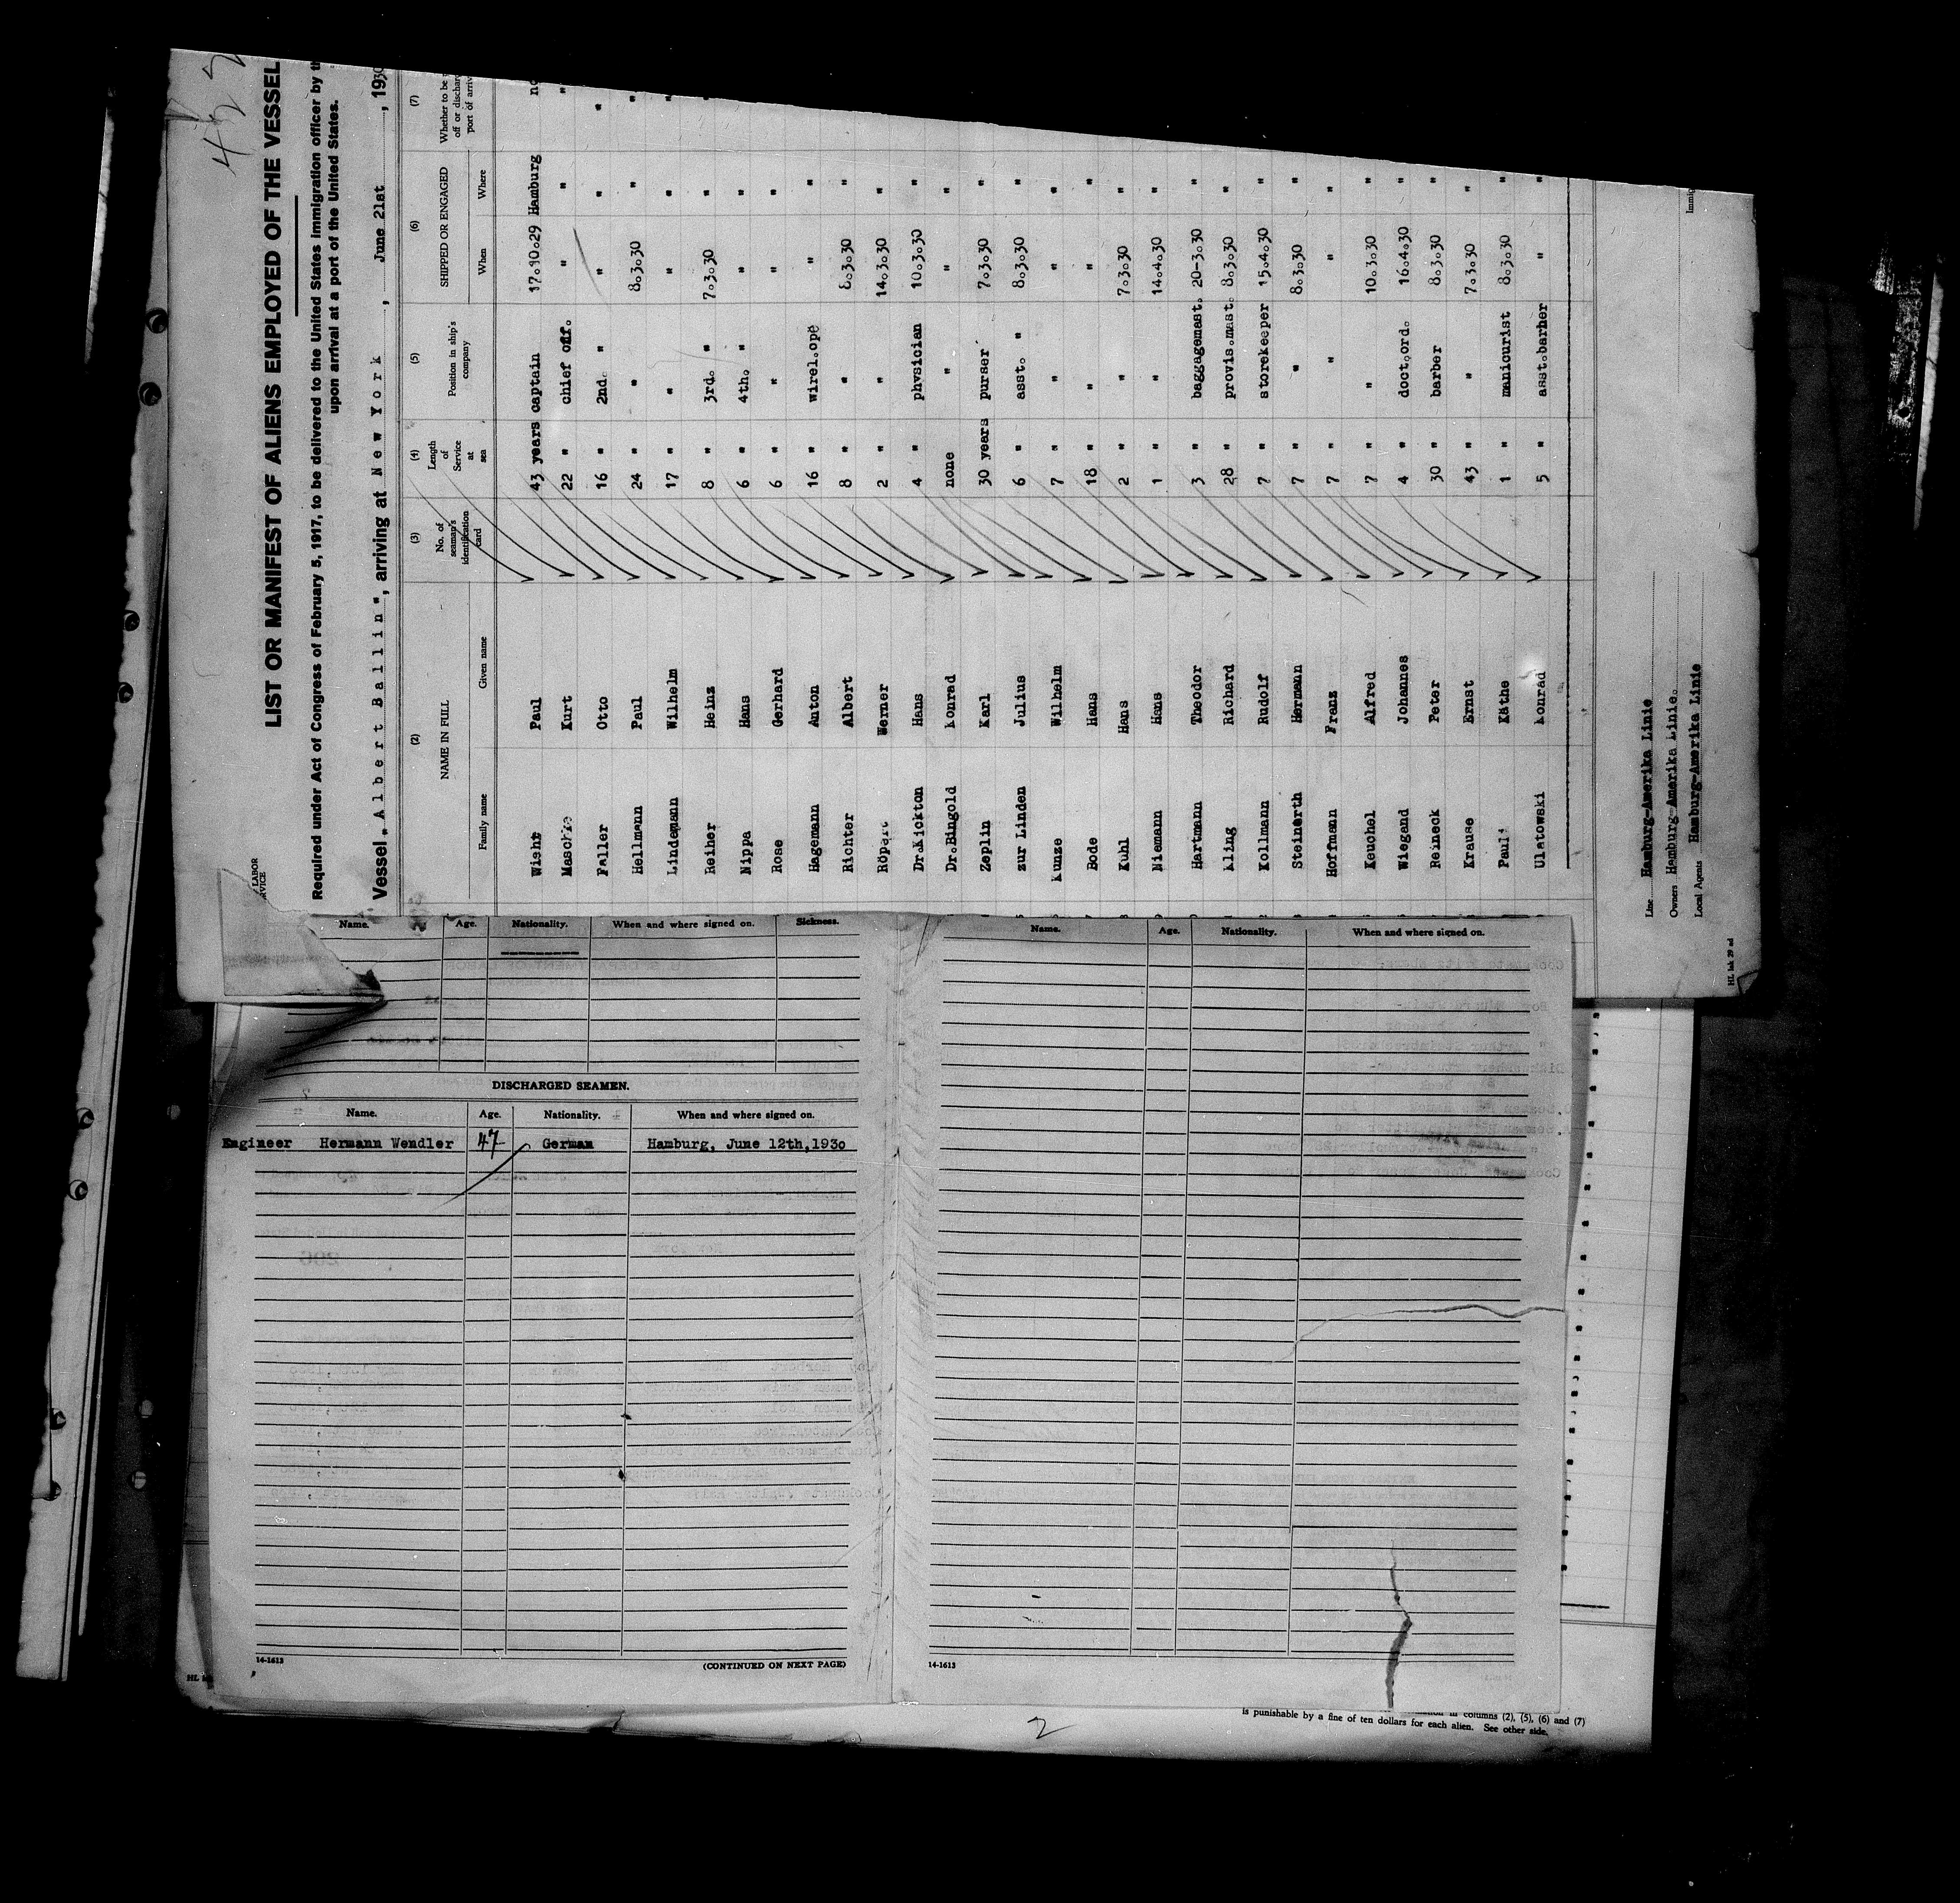 452
LIST OR MANIFEST OF ALIENS EMPLOYED OF THE VESSEL
Required under Act of Congress of February 5, 1917, to be delivered to the United States immigration officer by th
upon arrival at a port of the United States.
LABOR
Vessel „Albert Ballin", arriving at New York, June 21st, 1930
(2) (3) (4) (5) (6) (7)
NAME IN FULL
Family name Given name
No. of seaman's identification card
Length of Service at sea
Position in ship's company
SHIPPED OR ENGAGED
When Where
Whether to be
off or dischar
port of arriv
Wiehr Paul 43 years captain 17.10.29 Hamburg no
Kurt 22 " chief off. " " "
Faller Otto 16 " 2nd. " " " "
Hellmann Paul 24 " " 8.3.30 " "
Lindemann Wilhelm 17 " " " " "
Reiher Heinz 8 " 3rd. " 7.3.30 " "
Nippa Hans 6 " 4th. " " "
Rose Gerhard 6 " " " "
Hagemann Anton 16 " wirel.ope " "
Richter Albert 8 " " 8.3.30 "
Röpert Werner 2 " " 14.3.30 "
Dr.Kickton Hans 4 " physician 10.3.30 "
Dr.Bingold Konrad none " " "
Zeplin Karl 30 years purser 7.3.30 "
zur Linden Julius 6 " asst. " 8.3.30 "
Kunze Wilhelm 7 " " " "
Bode Hans 18 " " " "
Kühl Hans 2 " " 7.3.30 "
Niemann Hans 1 " " 14.4.30 "
Hartmann Theodor 3 " baggagemast. 20-3.30 "
Kling Richard 28 " provis.mast. 8.3.30 "
Kollmann Rudolf 7 " storekeeper 15.4.30 "
Steinerth Hermann 7 " " 8.3.30 "
Hoffmann Franz 7 " " " "
Keuchel Alfred 7 " " 10.3.30 "
Wiegand Johannes 4 " doct.ord. 16.4.30 "
Reineck Peter 30 " barber 8.3.30 "
Krause Ernst 43 " " 7.3.30 "
Pauli Käthe 1 " manicurist 8.3.30 "
Ulatowski Konrad 5 " asst.barber " "
Line Hamburg-Amerika Linie
Owners Hamburg-Amerika Linie.
Local Agents Hamburg-Amerika Linie
Immig
HL lak 29 ad
Name. Age. Nationality. When and where signed on. Sickness.
DISCHARGED SEAMEN.
Name. Age. Nationality. When and where signed on.
Engineer Hermann Wendler 47 German Hamburg, June 12th,1930
14-1613
(CONTINUED ON NEXT PAGE)
Name. Age. Nationality. When and where signed on.
14-1613
HL
2
in columns (2), (5), (6) and (7)
is punishable by a fine of ten dollars for each alien. See other side.